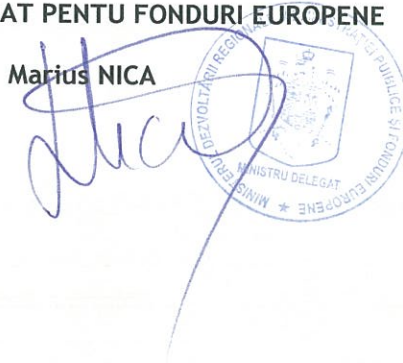 AT PENTU FONDURI EUROPENE
Marius NICA
MINISTERUL DEZVOLTĂRII REGIONALE PUBLICE ȘI FONDURI EUROPENE
MINISTRU DELEGAT